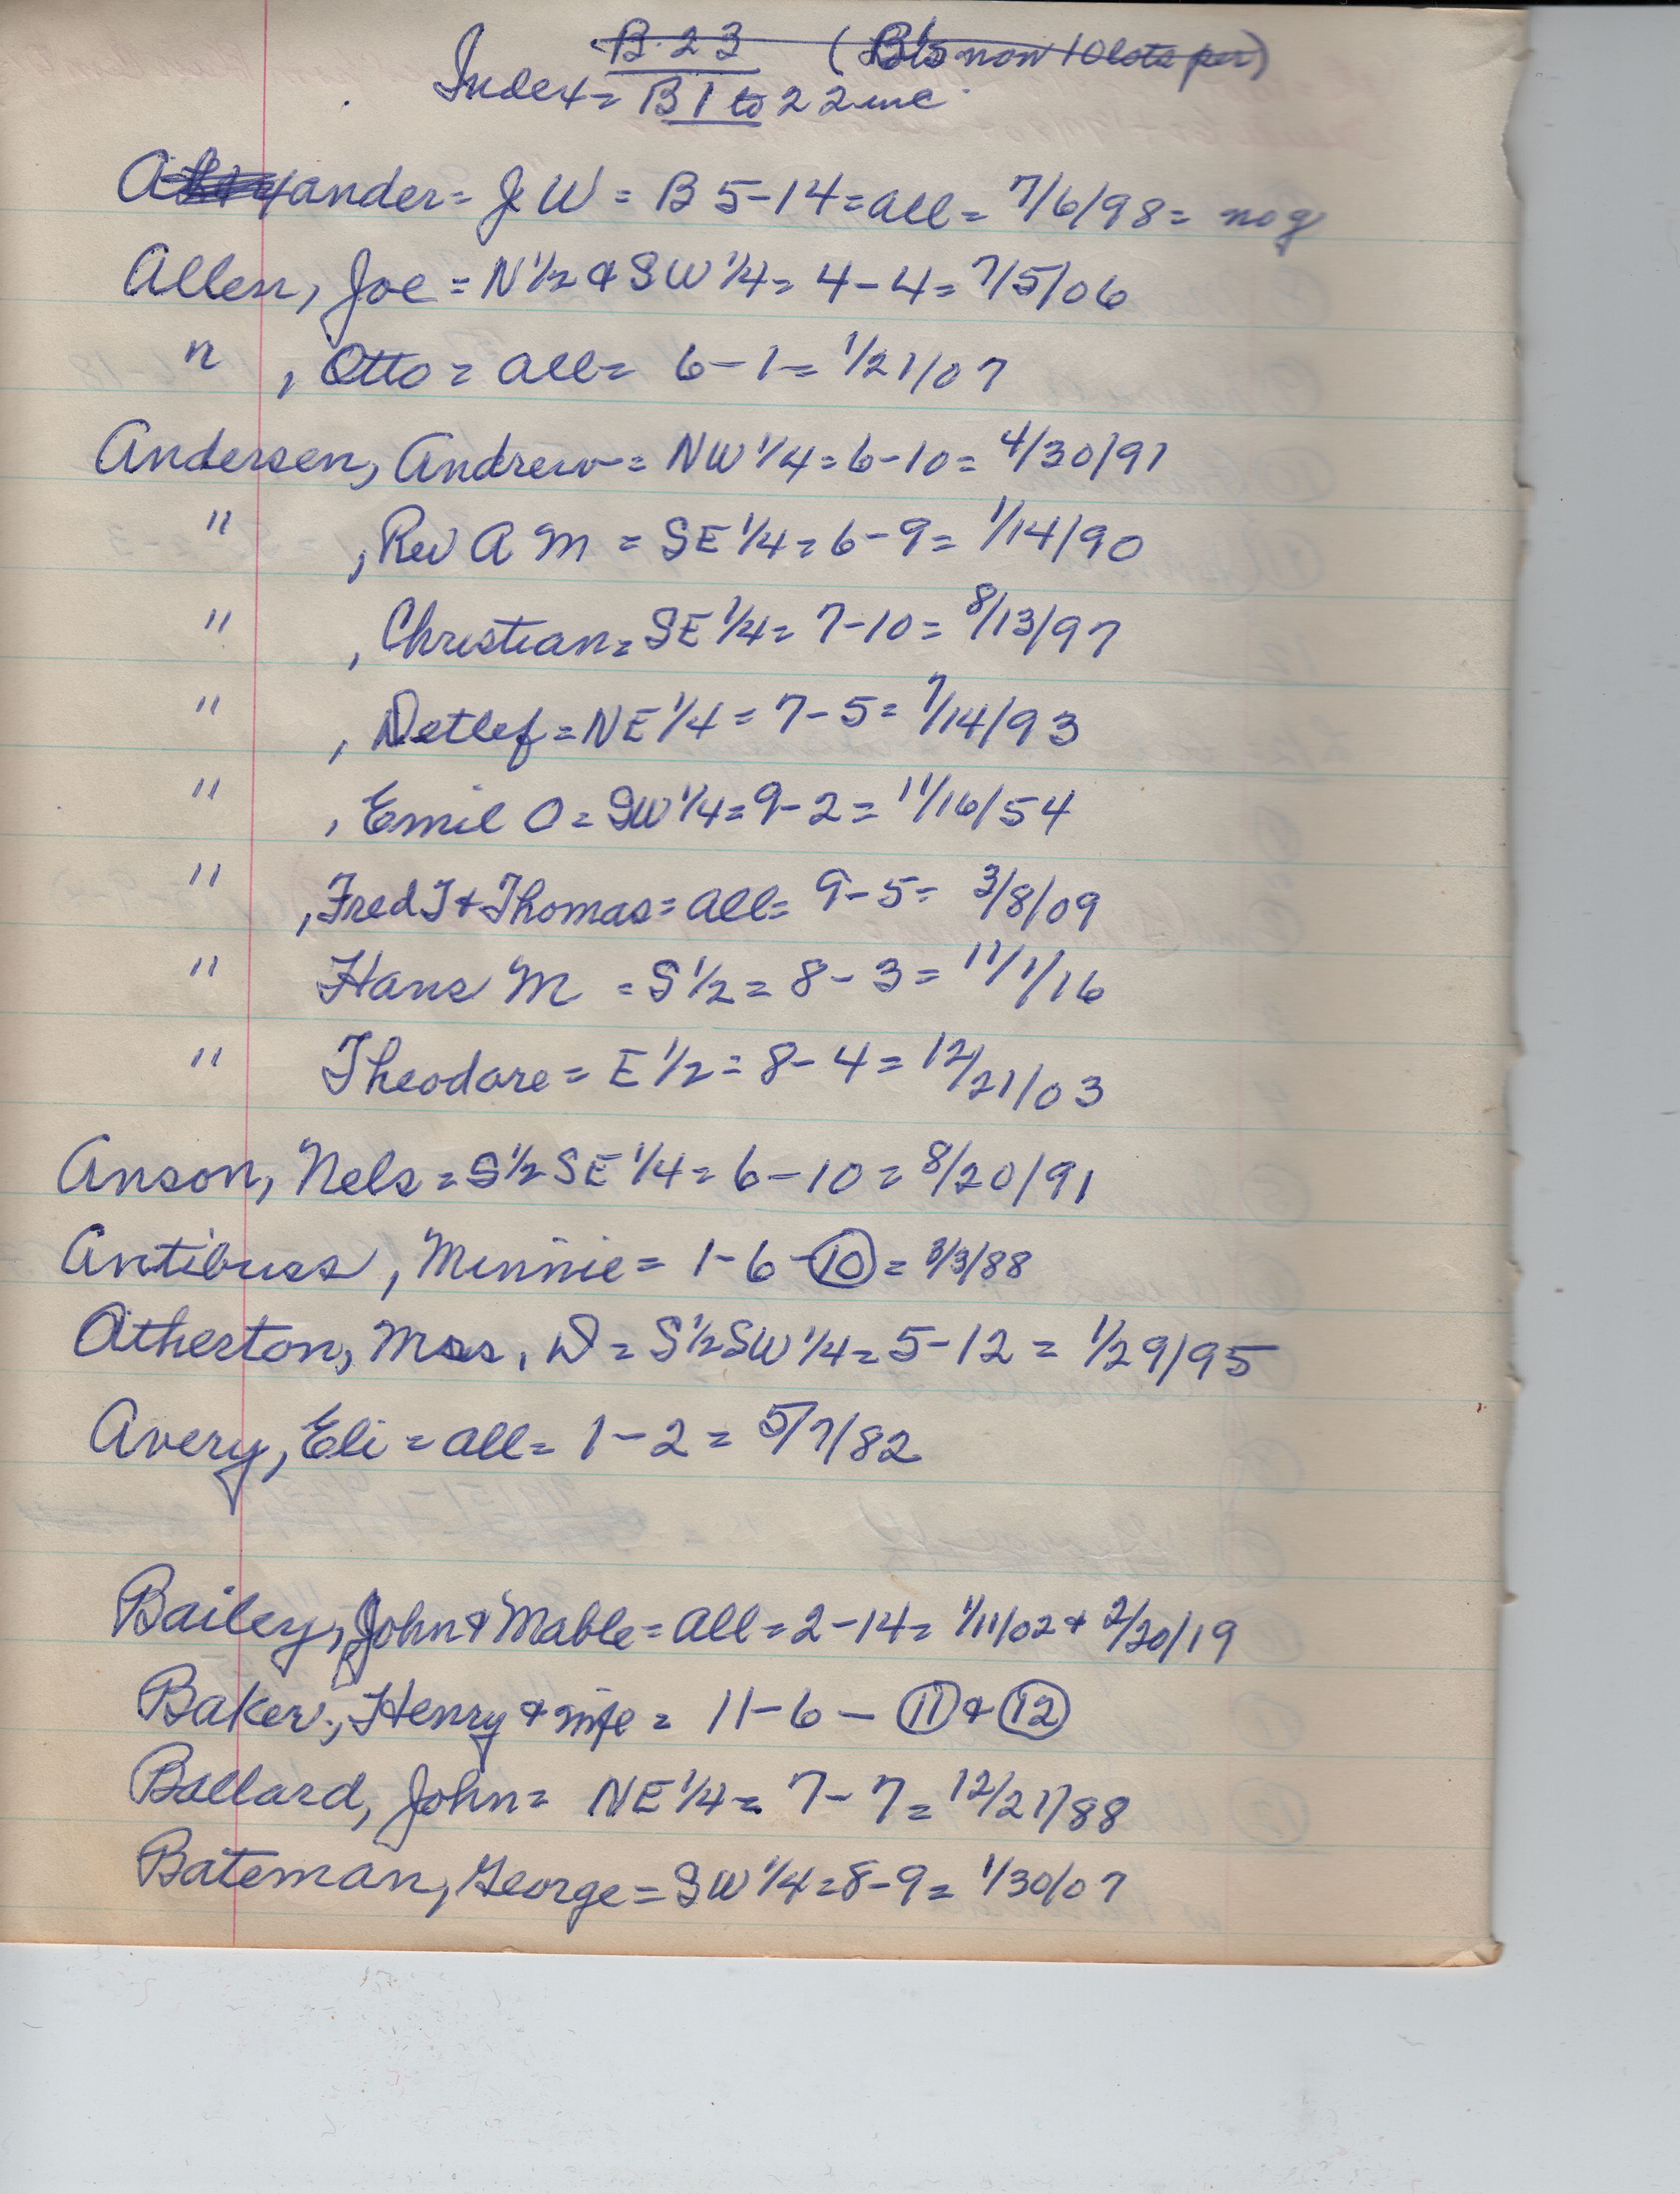 B-23 (B's now 10 lots per)
Index = B 1 to 22 inc.
Alexander = J W = B 5-14 = all = 7/6/98 = no g
Allen, Joe = N 1/2 & SW 1/4 = 4-4 = 7/5/06
" , Otto = all = 6-1 = 1/21/07
Andersen, Andrew = NW 1/4 = 6-10 = 4/30/91
" , Rev A M = SE 1/4 = 6-9 = 1/14/90
" , Christian = SE 1/4 = 7-10 = 8/13/97
" , Detlef = NE 1/4 = 7-5 = 7/14/93
" , Emil O = SW 1/4 = 9-2 = 11/16/54
" , Fred T & Thomas = all = 9-5 = 3/8/09
" Hans M = S 1/2 = 8-3 = 11/1/16
" Theodore = E 1/2 = 8-4 = 12/21/03
Anson, Nels = S 1/2 SE 1/4 = 6-10 = 8/20/91
Antibuss, Minnie = 1-6-10 = 3/3/88
Atherton, Mrs, D = S 1/2 SW 1/4 = 5-12 = 1/29/95
Avery, Eli = all = 1-2 = 5/7/82
Bailey, John & Mable = all = 2-14 = 1/11/02 & 2/20/19
Baker, Henry & wife = 11-6-11 & 12
Ballard, John = NE 1/4 = 7-7 = 12/21/88
Bateman, George = SW 1/4 = 8-9 = 1/30/07